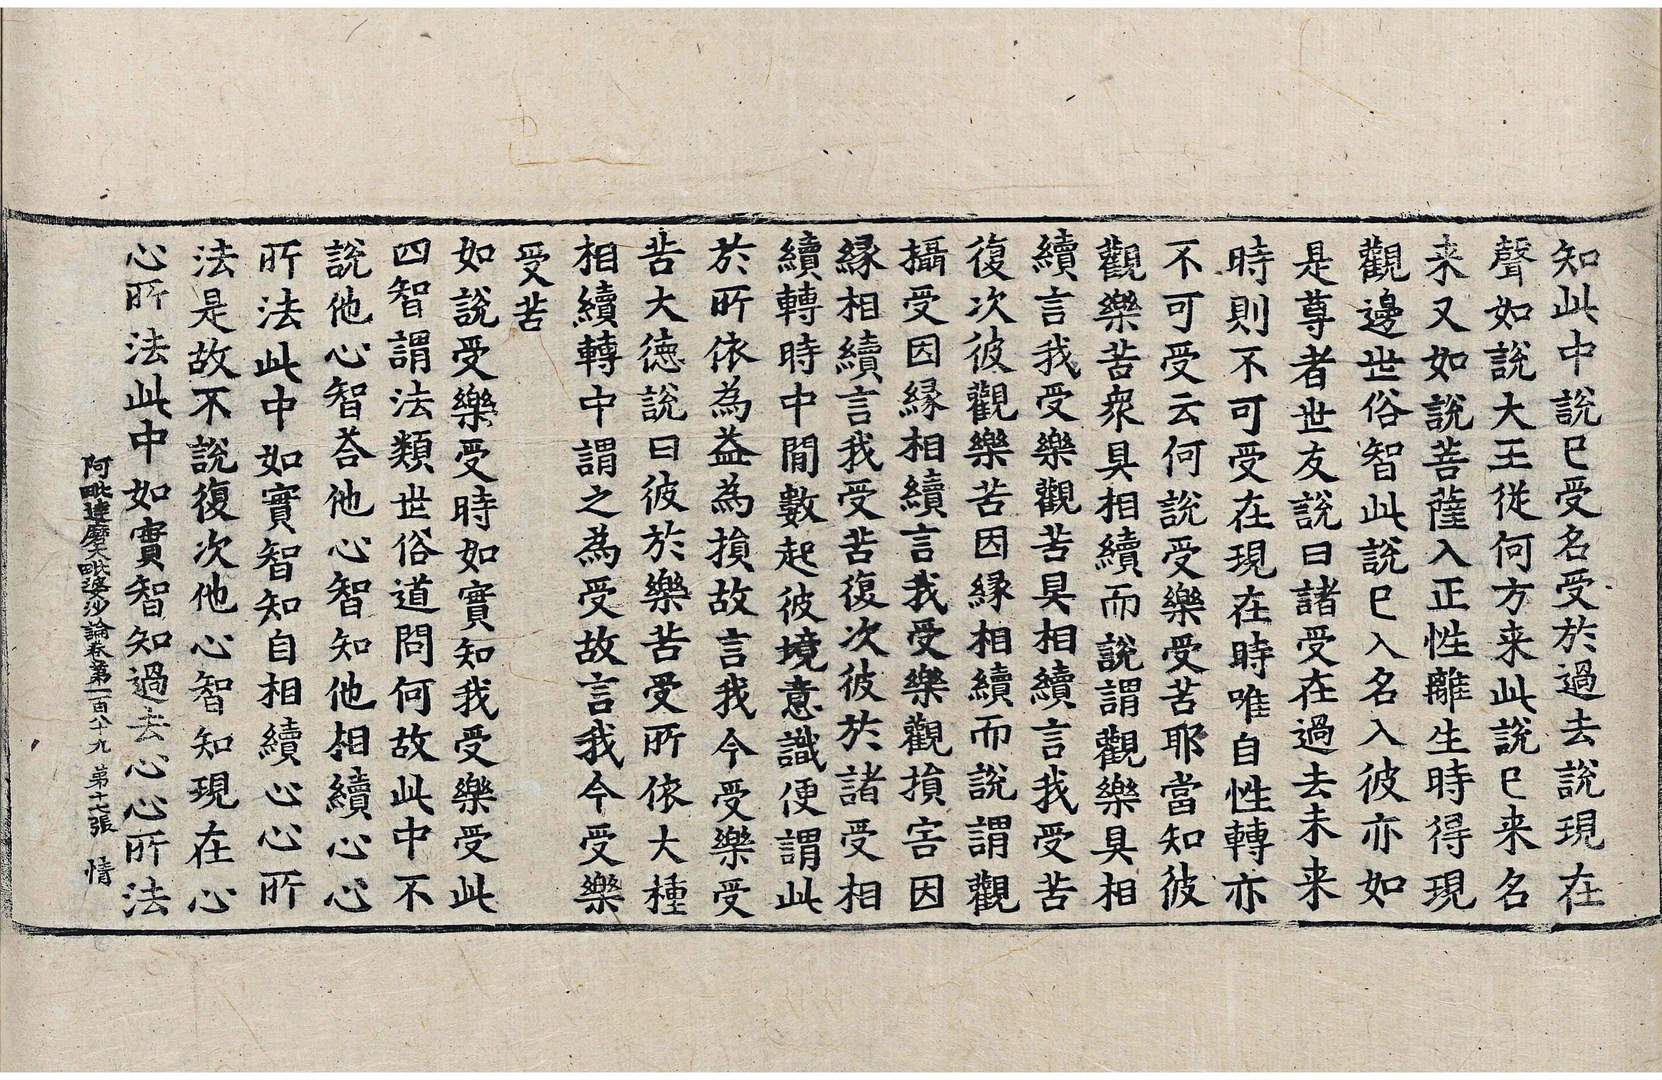 知此中說已受名受於過去說現在
聲如說大王從何方来此說已来名
来又如說菩薩入正性離生時得現
觀邊世俗智此說已入名入彼亦如
是尊者世友說曰諸受在過去未来
時則不可受在現在時唯自性轉亦
不可受云何說受樂受苦耶當知彼
觀樂苦衆具相續而說謂觀樂具相
續言我受樂觀苦具相續言我受苦
復次彼觀樂苦因縁相續而說謂觀
攝受因縁相續言我受樂觀損害因
縁相續言我受苦復次彼於諸受相
續轉時中間數起彼境意識便謂此
於所依為益為損故言我今受樂受
苦大徳說曰彼於樂苦受所依大種
相續轉中謂之為受故言我今受樂
受苦
如說受樂受時如實知我受樂受此
四智謂法類世俗道問何故此中不
說他心智荅他心智知他相續心心
所法此中如實智知自相續心心所
法是故不說復次他心智知現在心
心所法此中如實智知過去心心所法
阿毗達磨大毗婆沙論卷第一百八十九 第十七張 情